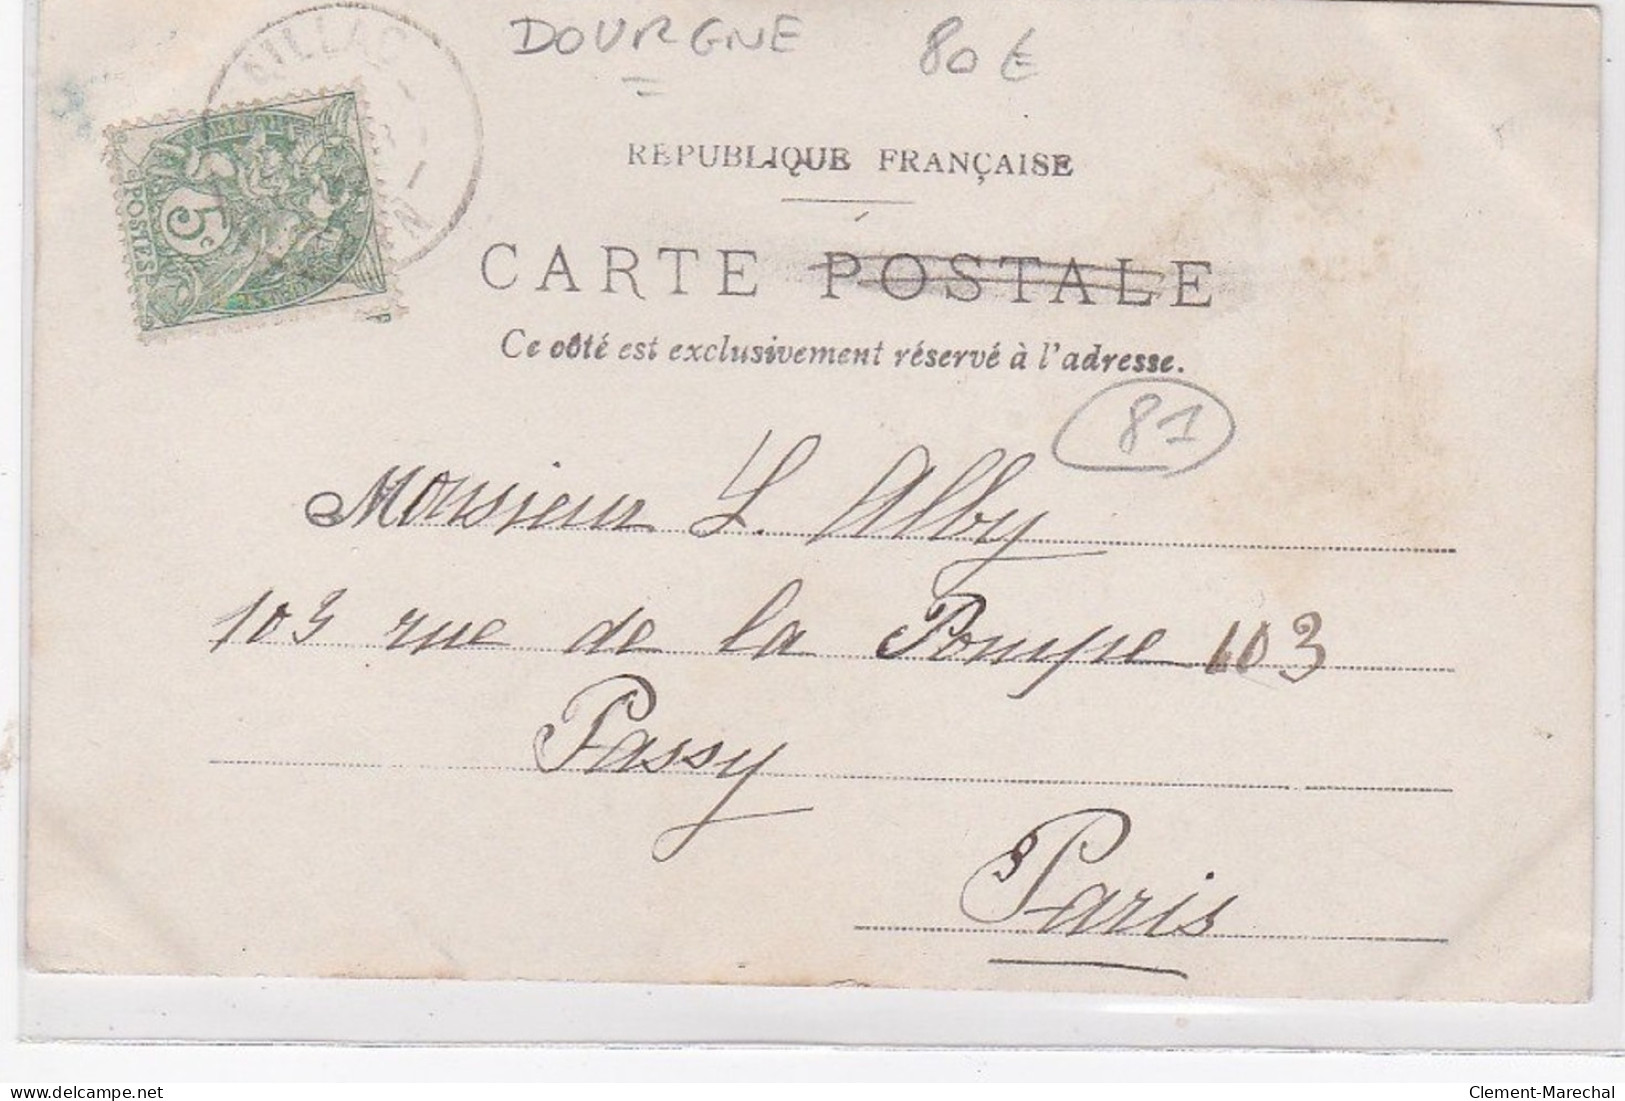 DOURGNE 80 €
RÉPUBLIQUE FRANÇAISE
CARTE POSTALE
Ce côté est exclusivement réservé à l'adresse.
81
5c
POSTES
Monsieur L. Alby
103 rue de la Pompe 103
Passy
Paris
delcampe.net
Clement-Marechal